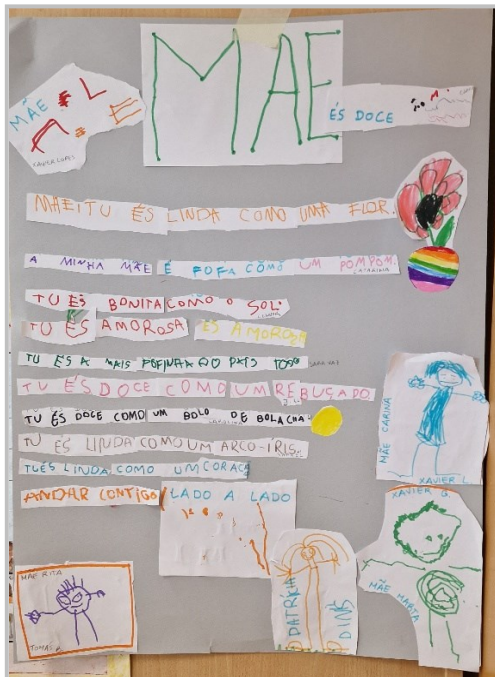 MÃE
MÃE É
XAVIER LOPES
ÉS DOCE
MÃE TU ÉS LINDA COMO UMA FLOR.
A MINHA MÃE É FOFA COMO UM POMPOM.
CATARINA
TU ÉS BONITA COMO O SOL.
TU ÉS AMOROSA ÉS AMOROSA
TU ÉS A MAIS FOFINHA DO PAÍS TODO
TU ÉS DOCE COMO UM REBUÇADO.
TU ÉS DOCE COMO UM BOLO DE BOLACHA
TU ÉS LINDA COMO UM ARCO-ÍRIS.
TUÉS LINDA COMO UM CORAÇA
ANDAR CONTIGO LADO A LADO
MÃE CARINA
XAVIER L.
XAVIER G.
MÃE MARTA
MÃE RITA
TOMÁS
DINIS